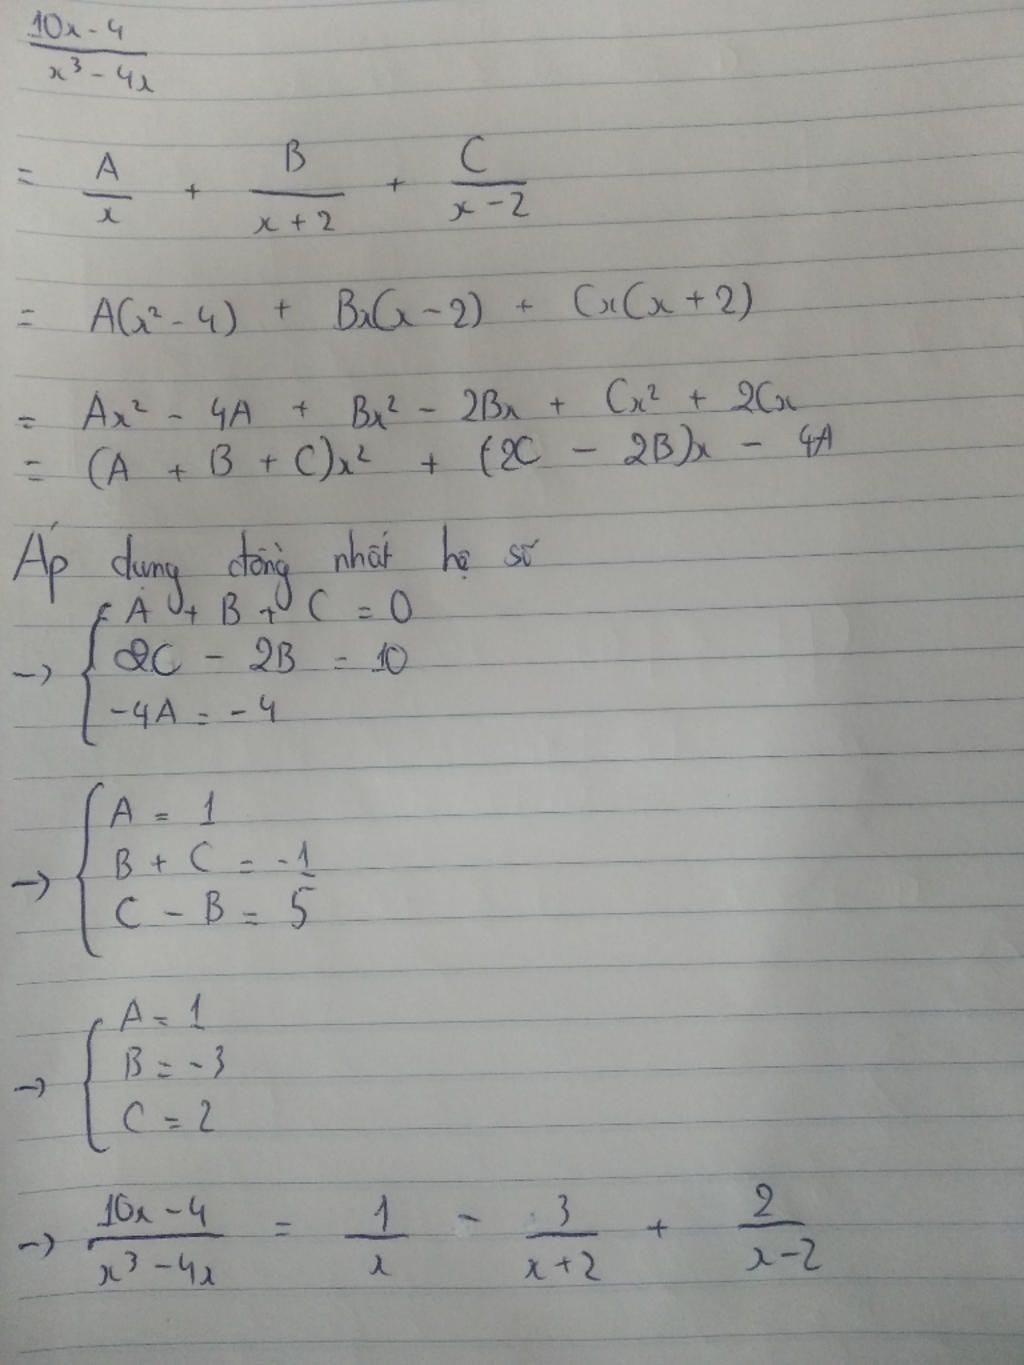 10x - 4
x³ - 4x
= A/x + B/(x + 2) + C/(x - 2)
= A(x² - 4) + Bx(x - 2) + Cx(x + 2)
= Ax² - 4A + Bx² - 2Bx + Cx² + 2Cx
= (A + B + C)x² + (2C - 2B)x - 4A
Áp dụng đồng nhất hệ số
A + B + C = 0
→ { 2C - 2B = 10
-4A = -4
A = 1
→ { B + C = -1
C - B = 5
A = 1
→ { B = -3
C = 2
→ (10x - 4)/(x³ - 4x) = 1/x - 3/(x + 2) + 2/(x - 2)